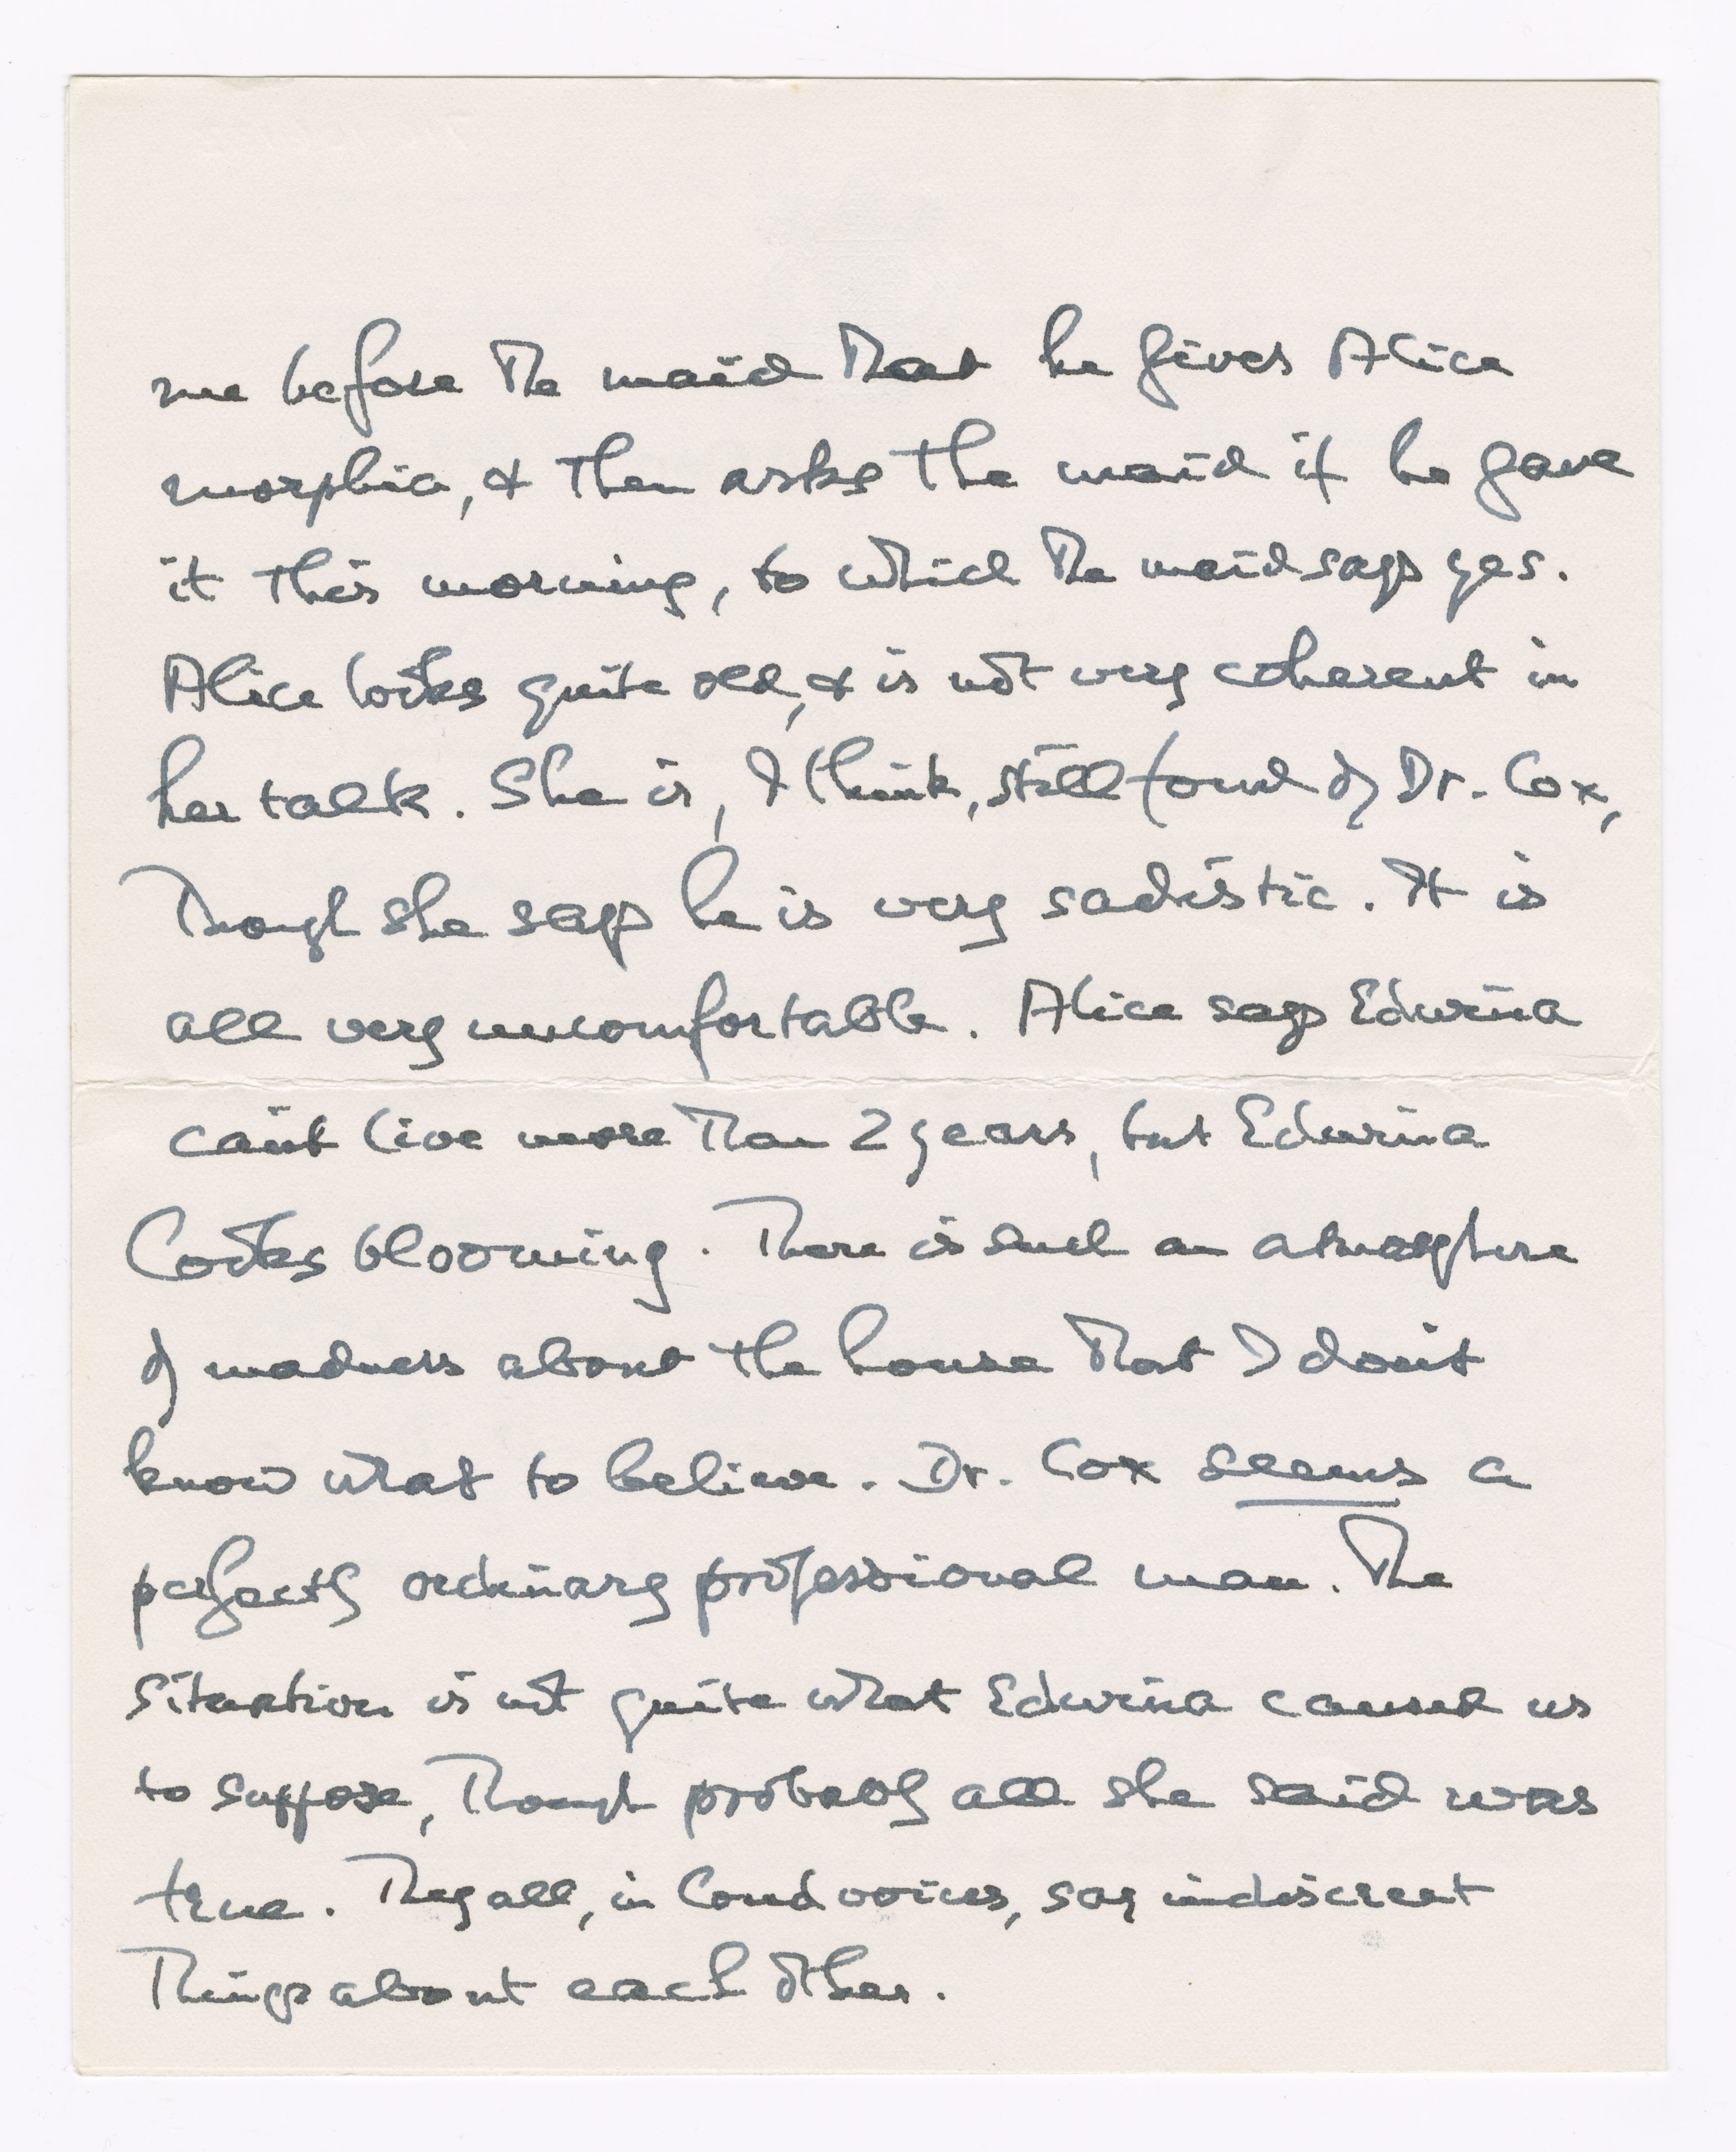 me before the maid that he gives Alice
morphia, & then asks the maid if he gave
it this morning, to which the maid says yes.
Alice looks quite old, & is not very coherent in
her talk. She is, I think, still fond of Dr. Cox,
though she says he is very sadistic. It is
all very uncomfortable. Alice says Edwina
can't live more than 2 years, but Edwina
looks blooming. There is such an atmosphere
of madness about the house that I don't
know what to believe. Dr. Cox seems a
perfectly ordinary professional man. The
situation is not quite what Edwina caused us
to suppose, though probably all she said was
true. They all, in loud voices, say indiscreet
things about each other.